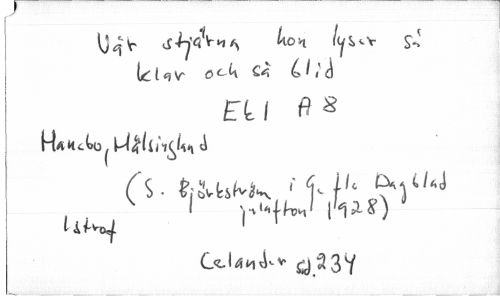 Vår stjärna hon lyser så
klar och så blid
Ek1 A8
Hanebo, Hälsingland
(S. Björkström i Gefle Dagblad
julafton 1928)
1 strof
Celander sid. 234